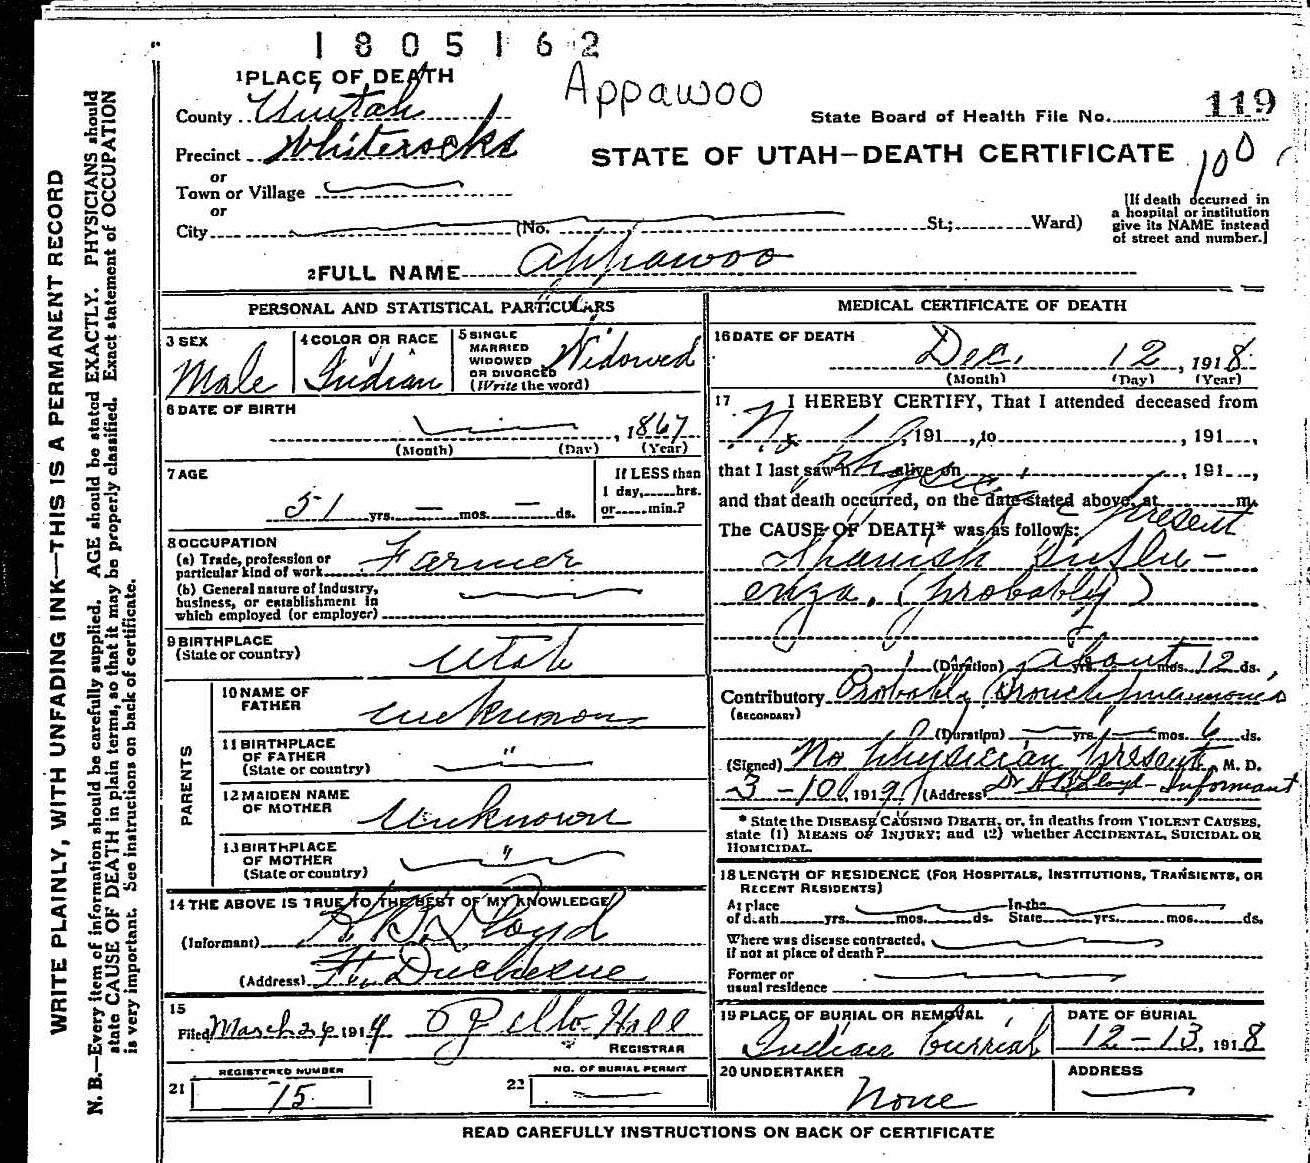 1805162
Appawoo
1 PLACE OF DEATH
County Uintah
State Board of Health File No. 119
Precinct Whiterocks
STATE OF UTAH—DEATH CERTIFICATE
100
or
Town or Village
or
City (No. St.; Ward)
[If death occurred in
a hospital or institution
give its NAME instead
of street and number.]
2 FULL NAME Appawoo
PERSONAL AND STATISTICAL PARTICULARS
3 SEX
Male
4 COLOR OR RACE
Indian
5 SINGLE
MARRIED
WIDOWED
OR DIVORCED
(Write the word)
Widowed
6 DATE OF BIRTH
, 1867
(Month) (Day) (Year)
7 AGE
51 yrs. — mos. — ds.
If LESS than
1 day, hrs.
or min.?
8 OCCUPATION
(a) Trade, profession or
particular kind of work Farmer
(b) General nature of industry,
business, or establishment in
which employed (or employer)
9 BIRTHPLACE
(State or country)
Utah
PARENTS
10 NAME OF
FATHER
unknown
11 BIRTHPLACE
OF FATHER
(State or country)
"
12 MAIDEN NAME
OF MOTHER
Unknown
13 BIRTHPLACE
OF MOTHER
(State or country)
"
14 THE ABOVE IS TRUE TO THE BEST OF MY KNOWLEDGE
(Informant) H. B. Lloyd
(Address) Ft. Duchesne
15
Filed March 24 1919
Hall
REGISTRAR
21
REGISTERED NUMBER
75
22
NO. OF BURIAL PERMIT
MEDICAL CERTIFICATE OF DEATH
16 DATE OF DEATH
Dec. 12, 1918
(Month) (Day) (Year)
17 I HEREBY CERTIFY, That I attended deceased from
No , 191 , to , 191 ,
that I last saw h alive on , 191 ,
and that death occurred, on the date stated above, at m.
present
The CAUSE OF DEATH* was as follows:
Spanish Influ-
enza. (probably)
(Duration) about yrs. mos. 12 ds.
Contributory Probably Bronchpneumonia
(SECONDARY)
(Duration) yrs. mos. 6 ds.
(Signed) No physician present, M. D.
3-10, 1919 (Address) Dr H B Lloyd - Informant
* State the DISEASE CAUSING DEATH, or, in deaths from VIOLENT CAUSES,
state (1) MEANS OF INJURY; and (2) whether ACCIDENTAL, SUICIDAL OR
HOMICIDAL.
18 LENGTH OF RESIDENCE (FOR HOSPITALS, INSTITUTIONS, TRANSIENTS, OR
RECENT RESIDENTS)
At place
of death yrs. mos. ds.
In the
State yrs. mos. ds.
Where was disease contracted,
if not at place of death?
Former or
usual residence
19 PLACE OF BURIAL OR REMOVAL
Indian burrial
DATE OF BURIAL
12-13, 1918
20 UNDERTAKER
None
ADDRESS
READ CAREFULLY INSTRUCTIONS ON BACK OF CERTIFICATE
WRITE PLAINLY, WITH UNFADING INK—THIS IS A PERMANENT RECORD
N. B.—Every item of information should be carefully supplied. AGE should be stated EXACTLY. PHYSICIANS should
state CAUSE OF DEATH in plain terms, so that it may be properly classified. Exact statement of OCCUPATION
is very important. See instructions on back of certificate.